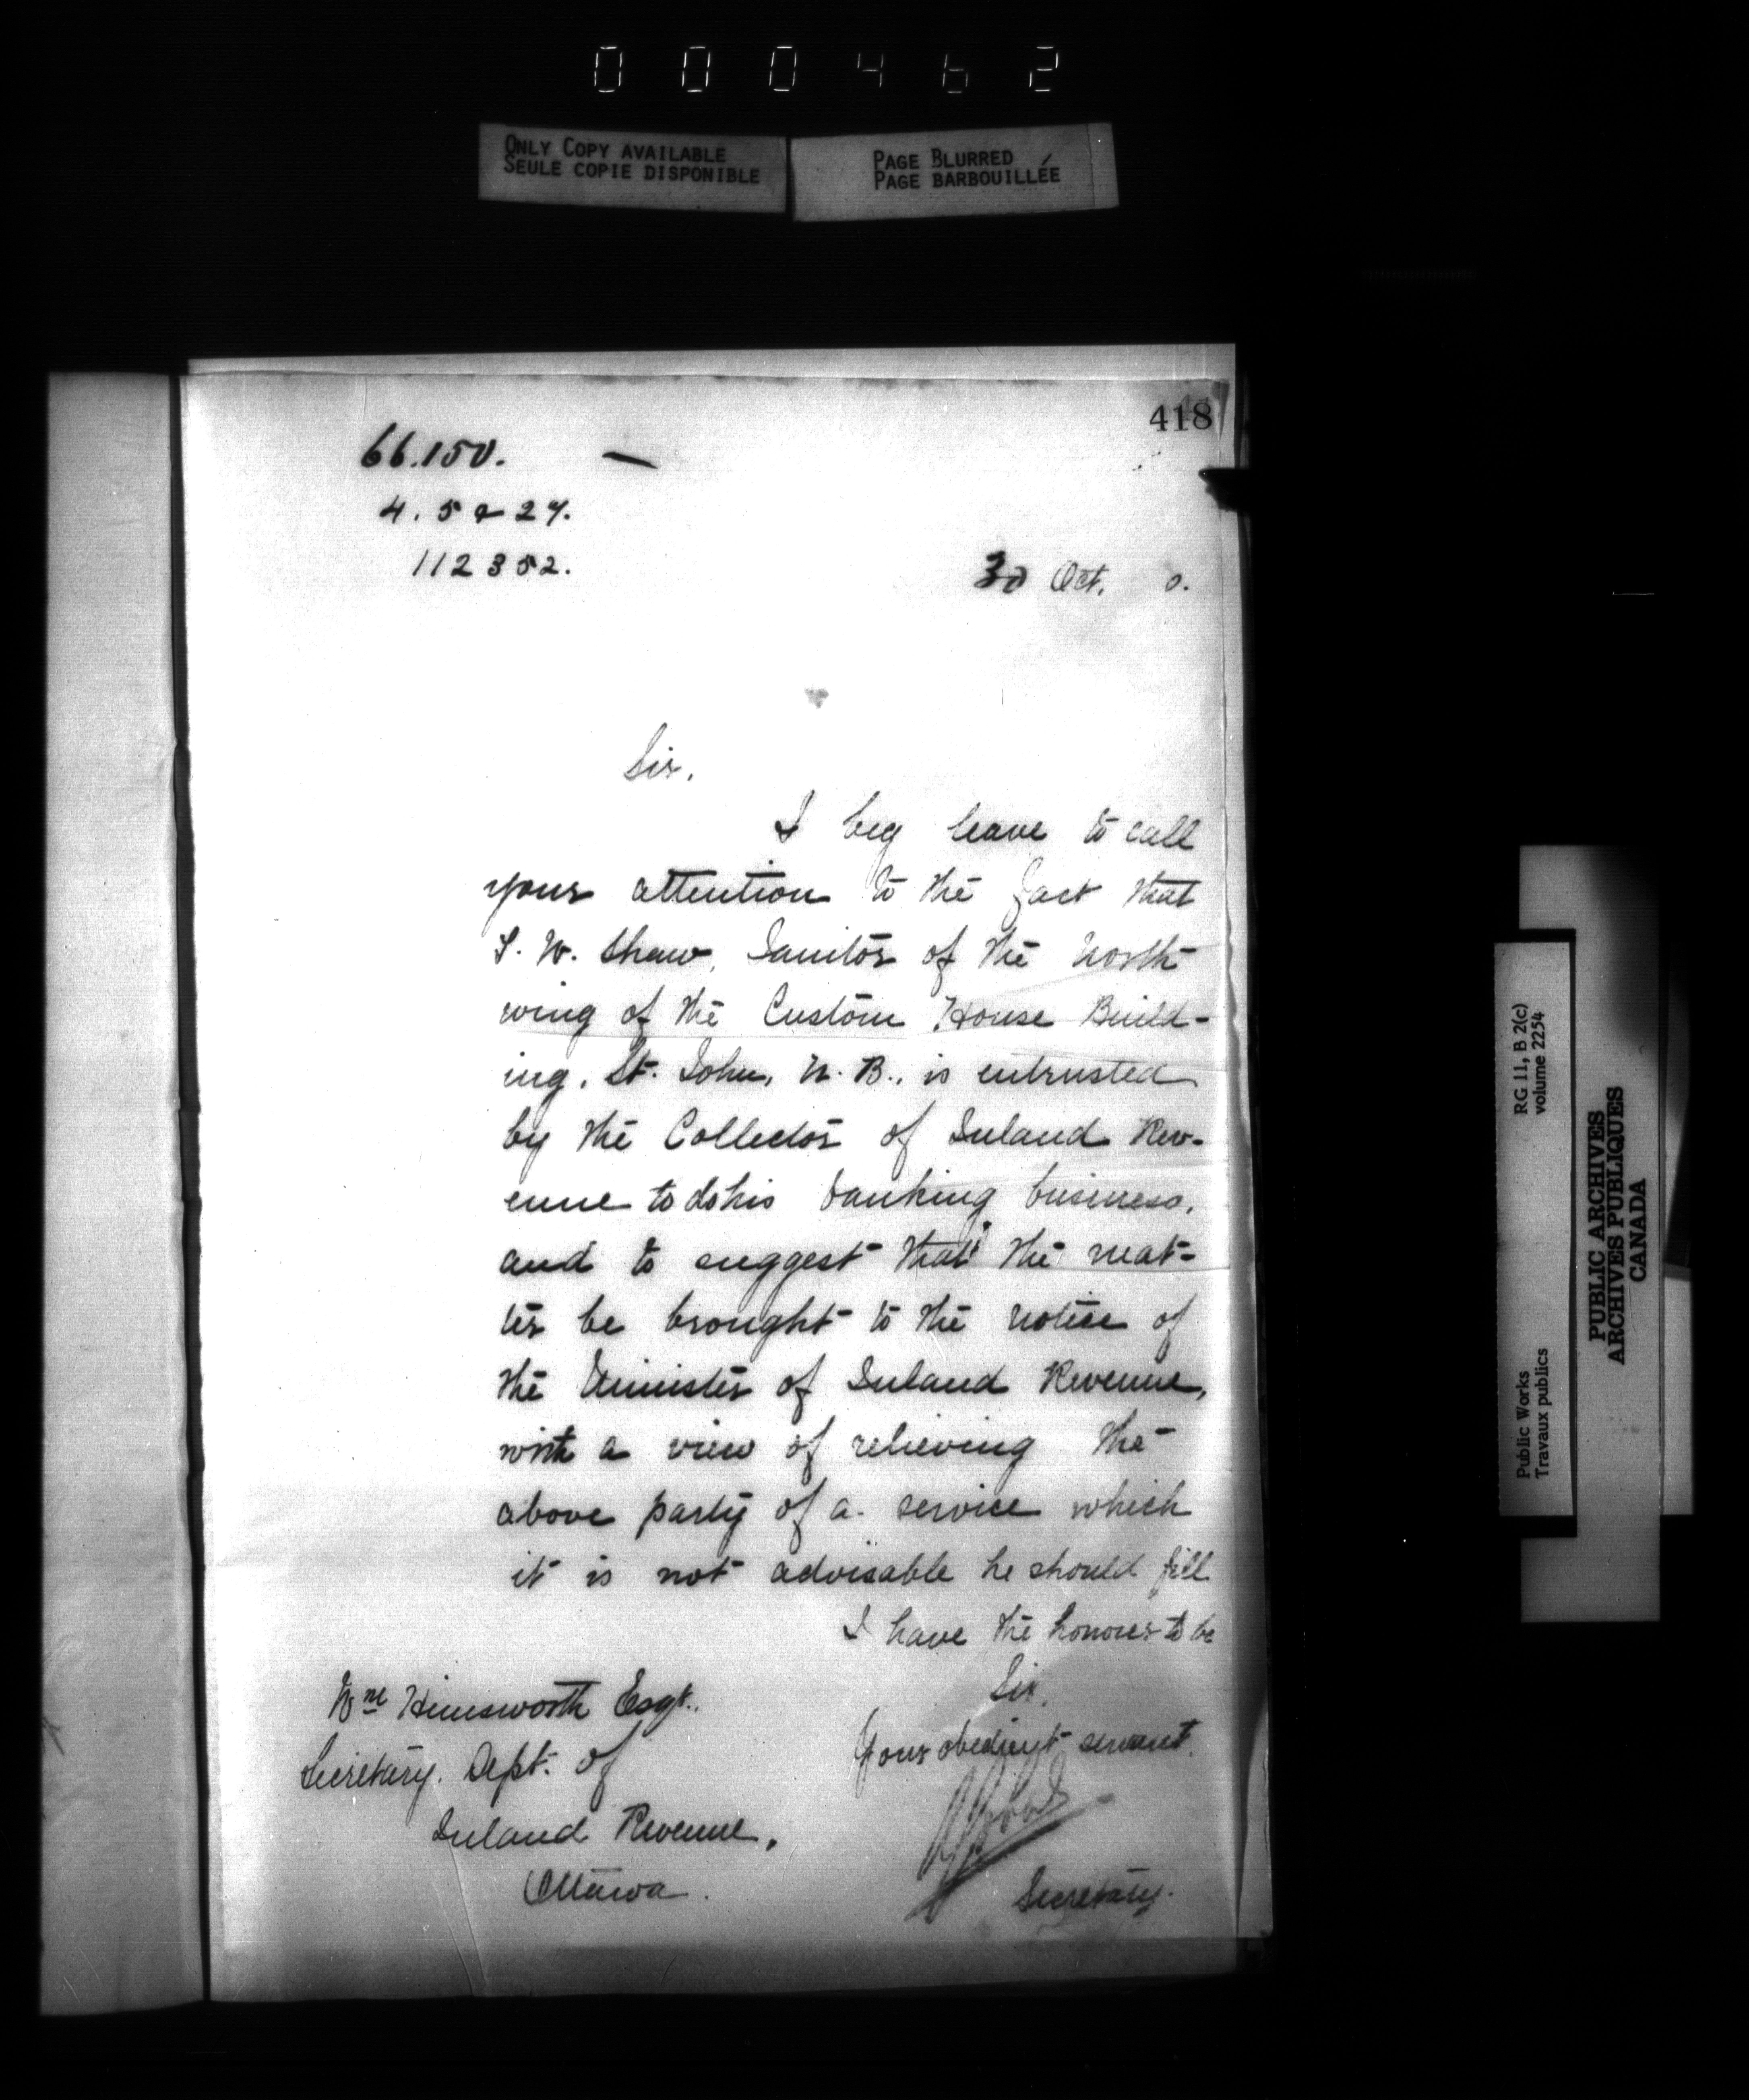 000462
ONLY COPY AVAILABLE
SEULE COPIE DISPONIBLE
PAGE BLURRED
PAGE BARBOUILLÉE
418
66.150. —
4. 5 & 27.
112352.
30 Oct. 0.
Sir,
I beg leave to call
your attention to the fact that
S. W. Shaw, Janitor of the North
wing of the Custom House Build-
ing, St. John, N. B., is entrusted
by the Collector of Inland Rev-
enue to do his banking business,
and to suggest that the mat-
ter be brought to the notice of
the Minister of Inland Revenue,
with a view of relieving the
above party of a service which
it is not advisable he should fill
I have the honour to be
Sir,
Your obedient servant.
Secretary.
Wm Himsworth Esqr.
Secretary. Dept. of
Inland Revenue,
Ottawa.
RG 11, B 2(c)
volume 2254
Public Works
Travaux publics
PUBLIC ARCHIVES
ARCHIVES PUBLIQUES
CANADA